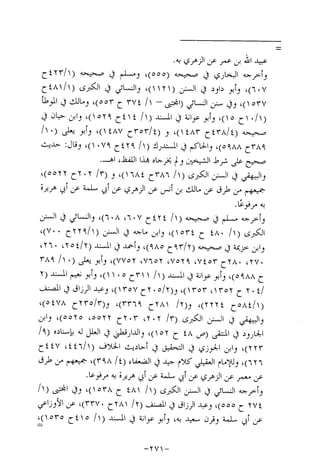 =
عبيد الله بن عمر عن الزهري به.
وأخرجه البخاري في صحيحه (٥٥٥)، ومسلم في صحيحه (٤٢٣/١ ح
٦٠٧)، وأبو داود في السنن (١١٢١)، والنسائي في الكبرى (٤٨١/١ ح
١٥٣٧)، وفي سنن النسائي (المجتبى – ١/ ٢٧٤ ح ٥٥٣)، ومالك في الموطأ
(١٠/١ ح ١٥)، وأبو عوانة في المسند (١/ ٤١٤ ح ١٥٢٩)، وابن حبان في
صحيحه (٤٣٨/٤ ح ١٤٨٣)، و (٣٥٣/٤ ح ١٤٨٧)، وأبو يعلى (١٠/
٣٨٩ ح ٥٩٨٨)، والحاكم في المستدرك (١/ ٤٢٩ ح ١٠٧٩)، وقال: حديث
صحيح على شرط الشيخين ولم يخرجاه بهذا اللفظ، اهـ.
والبيهقي في السنن الكبرى (١/ ٣٨٦ ح ١٦٨٤)، و (٣/ ٢٠٢ ح ٥٥٢٢)،
جميعهم من طرق عن مالك بن أنس عن الزهري عن أبي سلمة عن أبي هريرة
به مرفوعًا.
وأخرجه مسلم في صحيحه (١/ ٤٢٤ ح ٦٠٧، ٦٠٨)، والنسائي في السنن
الكبرى (١/ ٤٨٠ ح ١٥٣٤)، وابن ماجه في السنن (٢٢٩/١ ح ٧٠٠)،
وابن خزيمة في صحيحه (٩٣/٢ ح ٩٨٥)، وأحمد في المسند (٢٥٤/٢، ٢٦٠،
٢٧٠، ٢٨٠ ح ٧٤٥٣، ٧٥٢٩، ٧٦٥٢، ٧٧٥٢)، وأبو يعلى (١٠/ ٣٨٩
ح ٥٩٨٨)، وأبو عوانة في المسند (١/ ٣١١ ح ١١٠٥)، وأبو نعيم المسند (٢
/ ٢٠٤ ح ١٣٥٢، ١٣٥٣)، و(٢٠٥/٢ ح ١٣٥٧)، وعبد الرزاق في المصنف
(٥٨٤/١ ح ٢٢٢٤)، و(٢/ ٢٨١ ح ٣٣٦٩)، و(٢٣٥/٣ ح ٥٤٧٨)،
والبيهقي في السنن الكبرى (٣/ ٢٠٢، ٢٠٣ ح ٥٥٢٢، ٥٥٢٥)، وابن
الجارود في المنتقى (ص ٤٨ ح ١٥٢)، والدارقطني في العلل له بإسناده (٩/
٢٢٣)، وابن الجوزي في التحقيق في أحاديث الخلاف (٤٤٦/١، ٤٤٧ ح
٦٢٦)، وللإمام العقيلي كلام جيد في الضعفاء (٤/ ٣٩٨)، جميعهم من طرق
عن معمر عن الزهري عن أبي سلمة عن أبي هريرة به مرفوعًا.
وأخرجه النسائي في السنن الكبرى (١/ ٤٨١ ح ١٥٣٨)، وفي المجتبى (١/
٢٧٤ ح ٥٥٥)، وعبد الرزاق في المصنف (٢/ ٢٨١ ح ٣٣٧٠)، عن الأوزاعي
عن أبي سلمة وقرن سعيد به، وأبو عوانة في المسند (١/ ٤١٥ ح ١٥٣٥)،
=
-٢٧١-